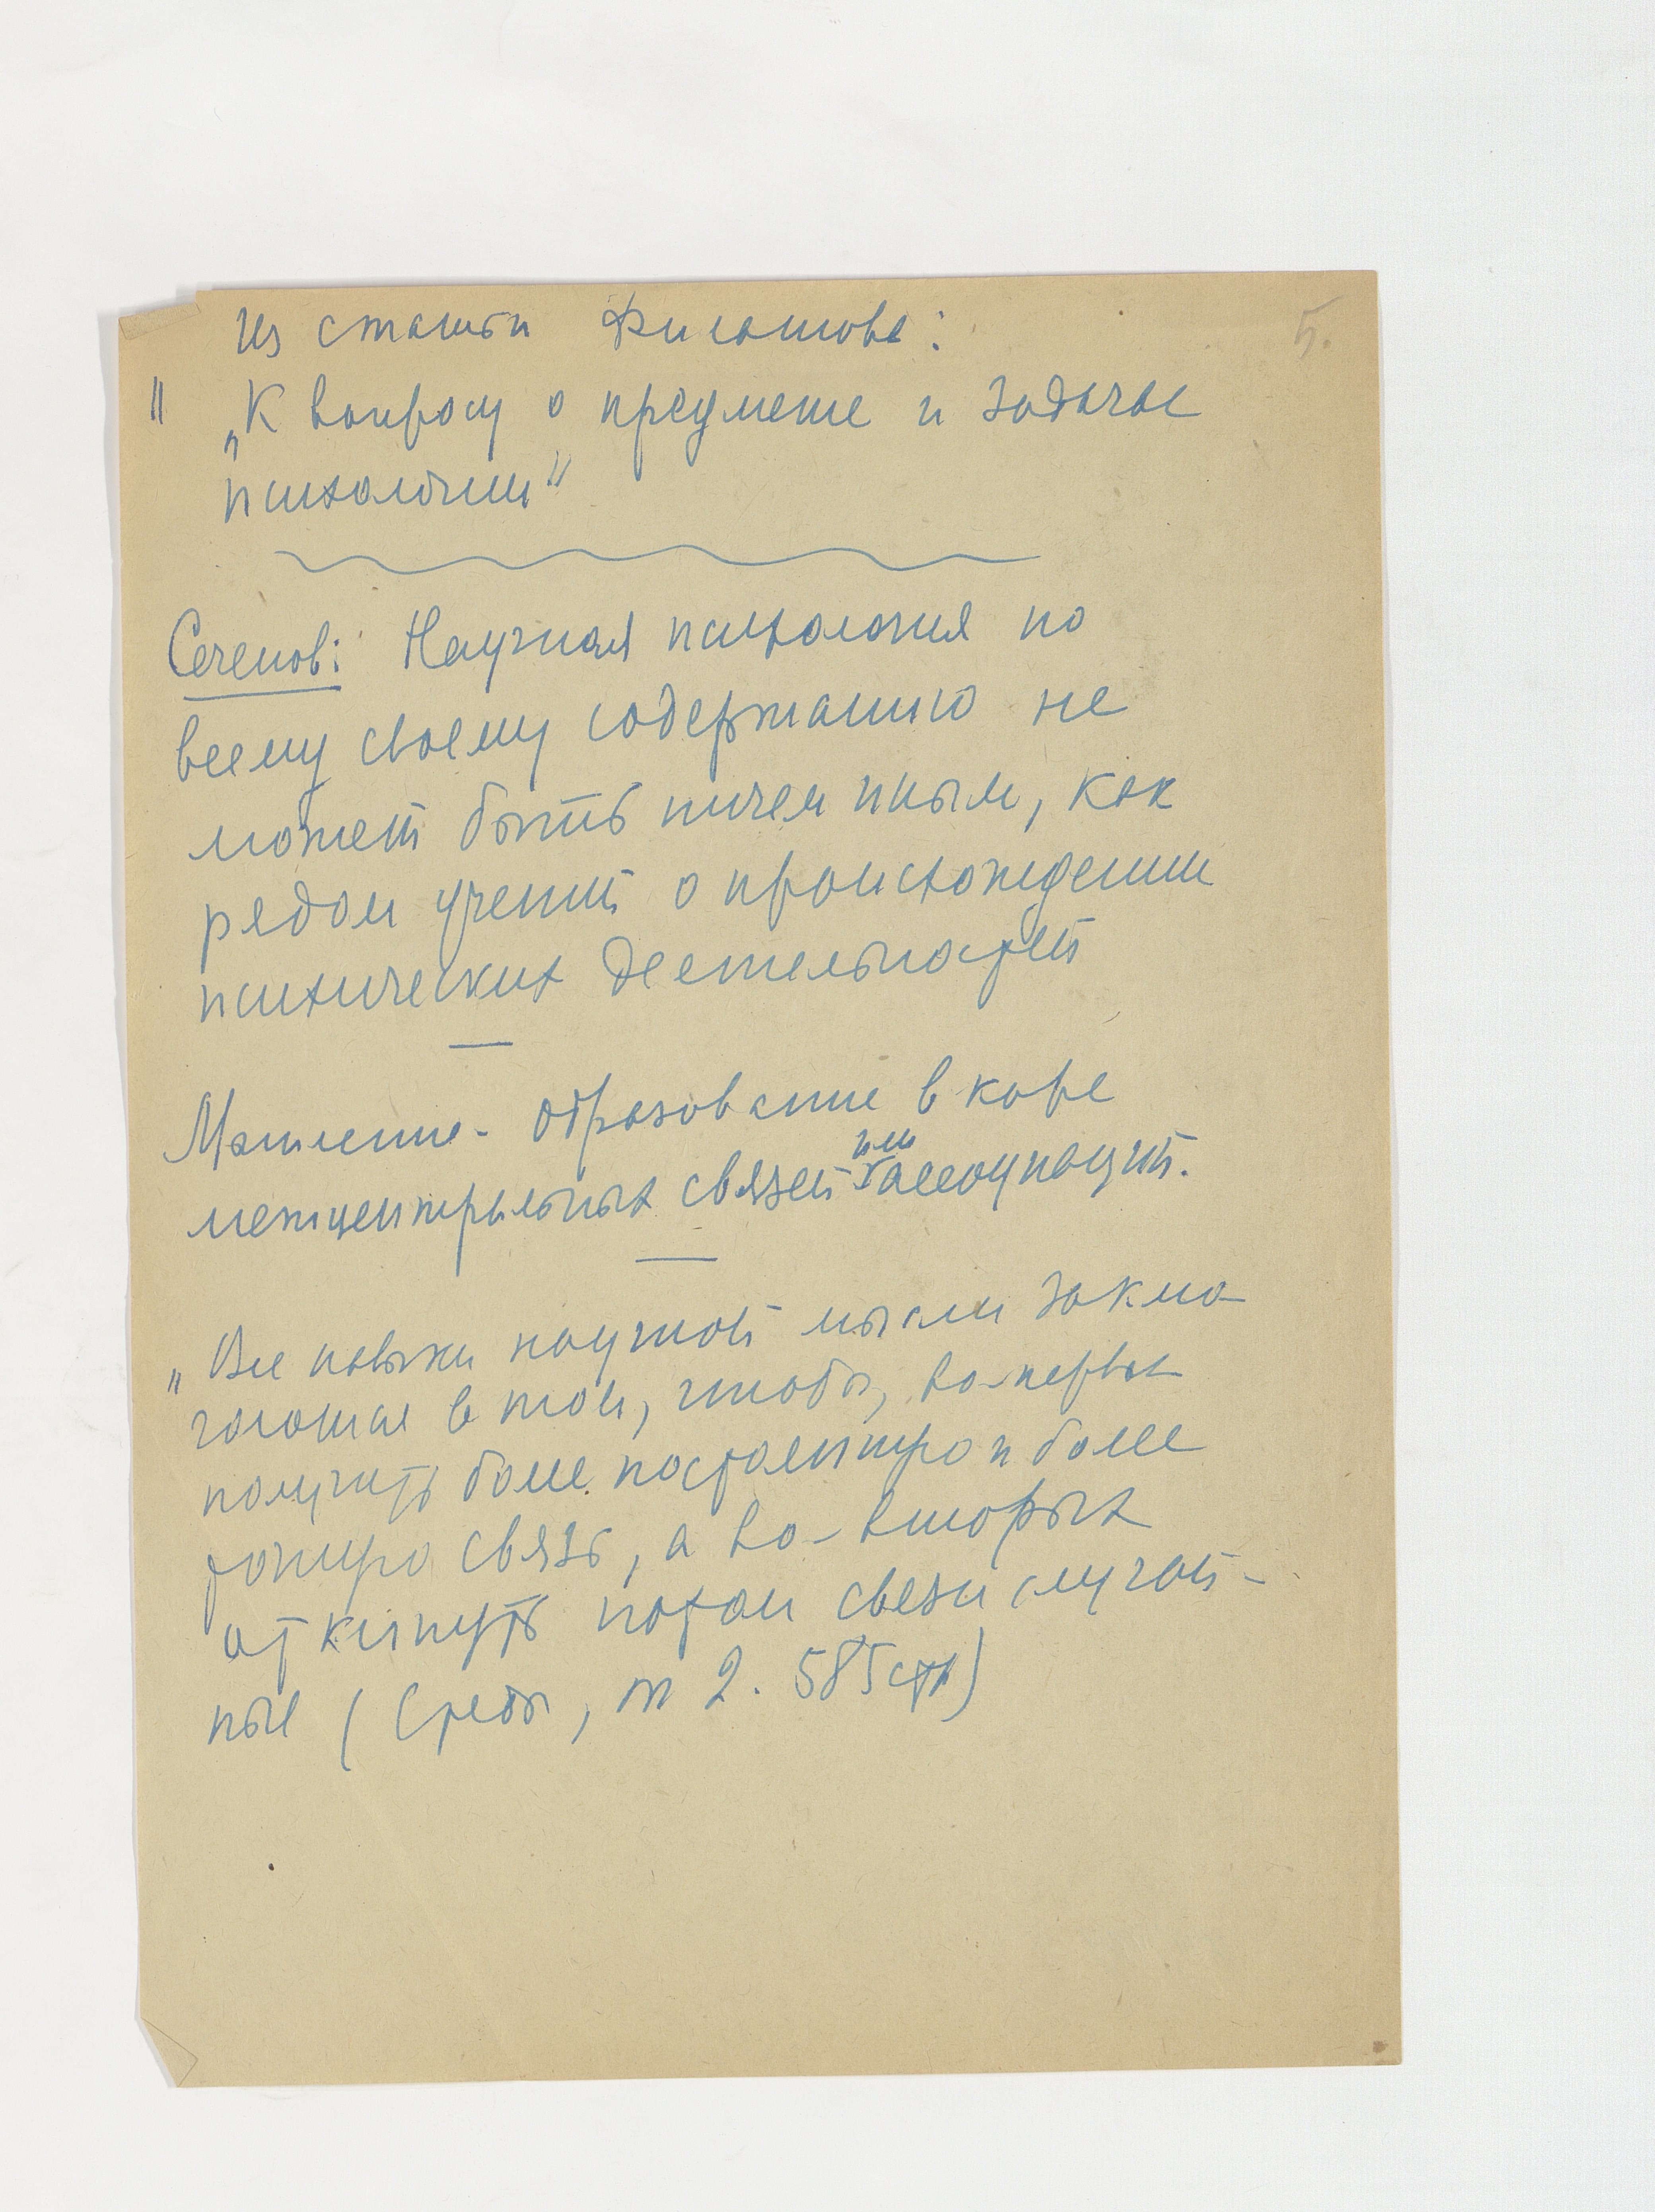 Из статьи Филатова:
5.
" „К вопросу о предмете и задачах
психологии"
Сеченов: Научная психология по
всему своему содержанию не
может быть ничем иным, как
рядом учений о происхождении
психических деятельностей
Мышление - образование в коре
межцентральных связей или ассоциаций.
„Все навыки научной мысли заклю-
чаются в том, чтобы, во-первых
получить более постоянную и более
точную связь, а во-вторых
откинуть потом связи случай-
ные (Среды, т 2. 585 стр)